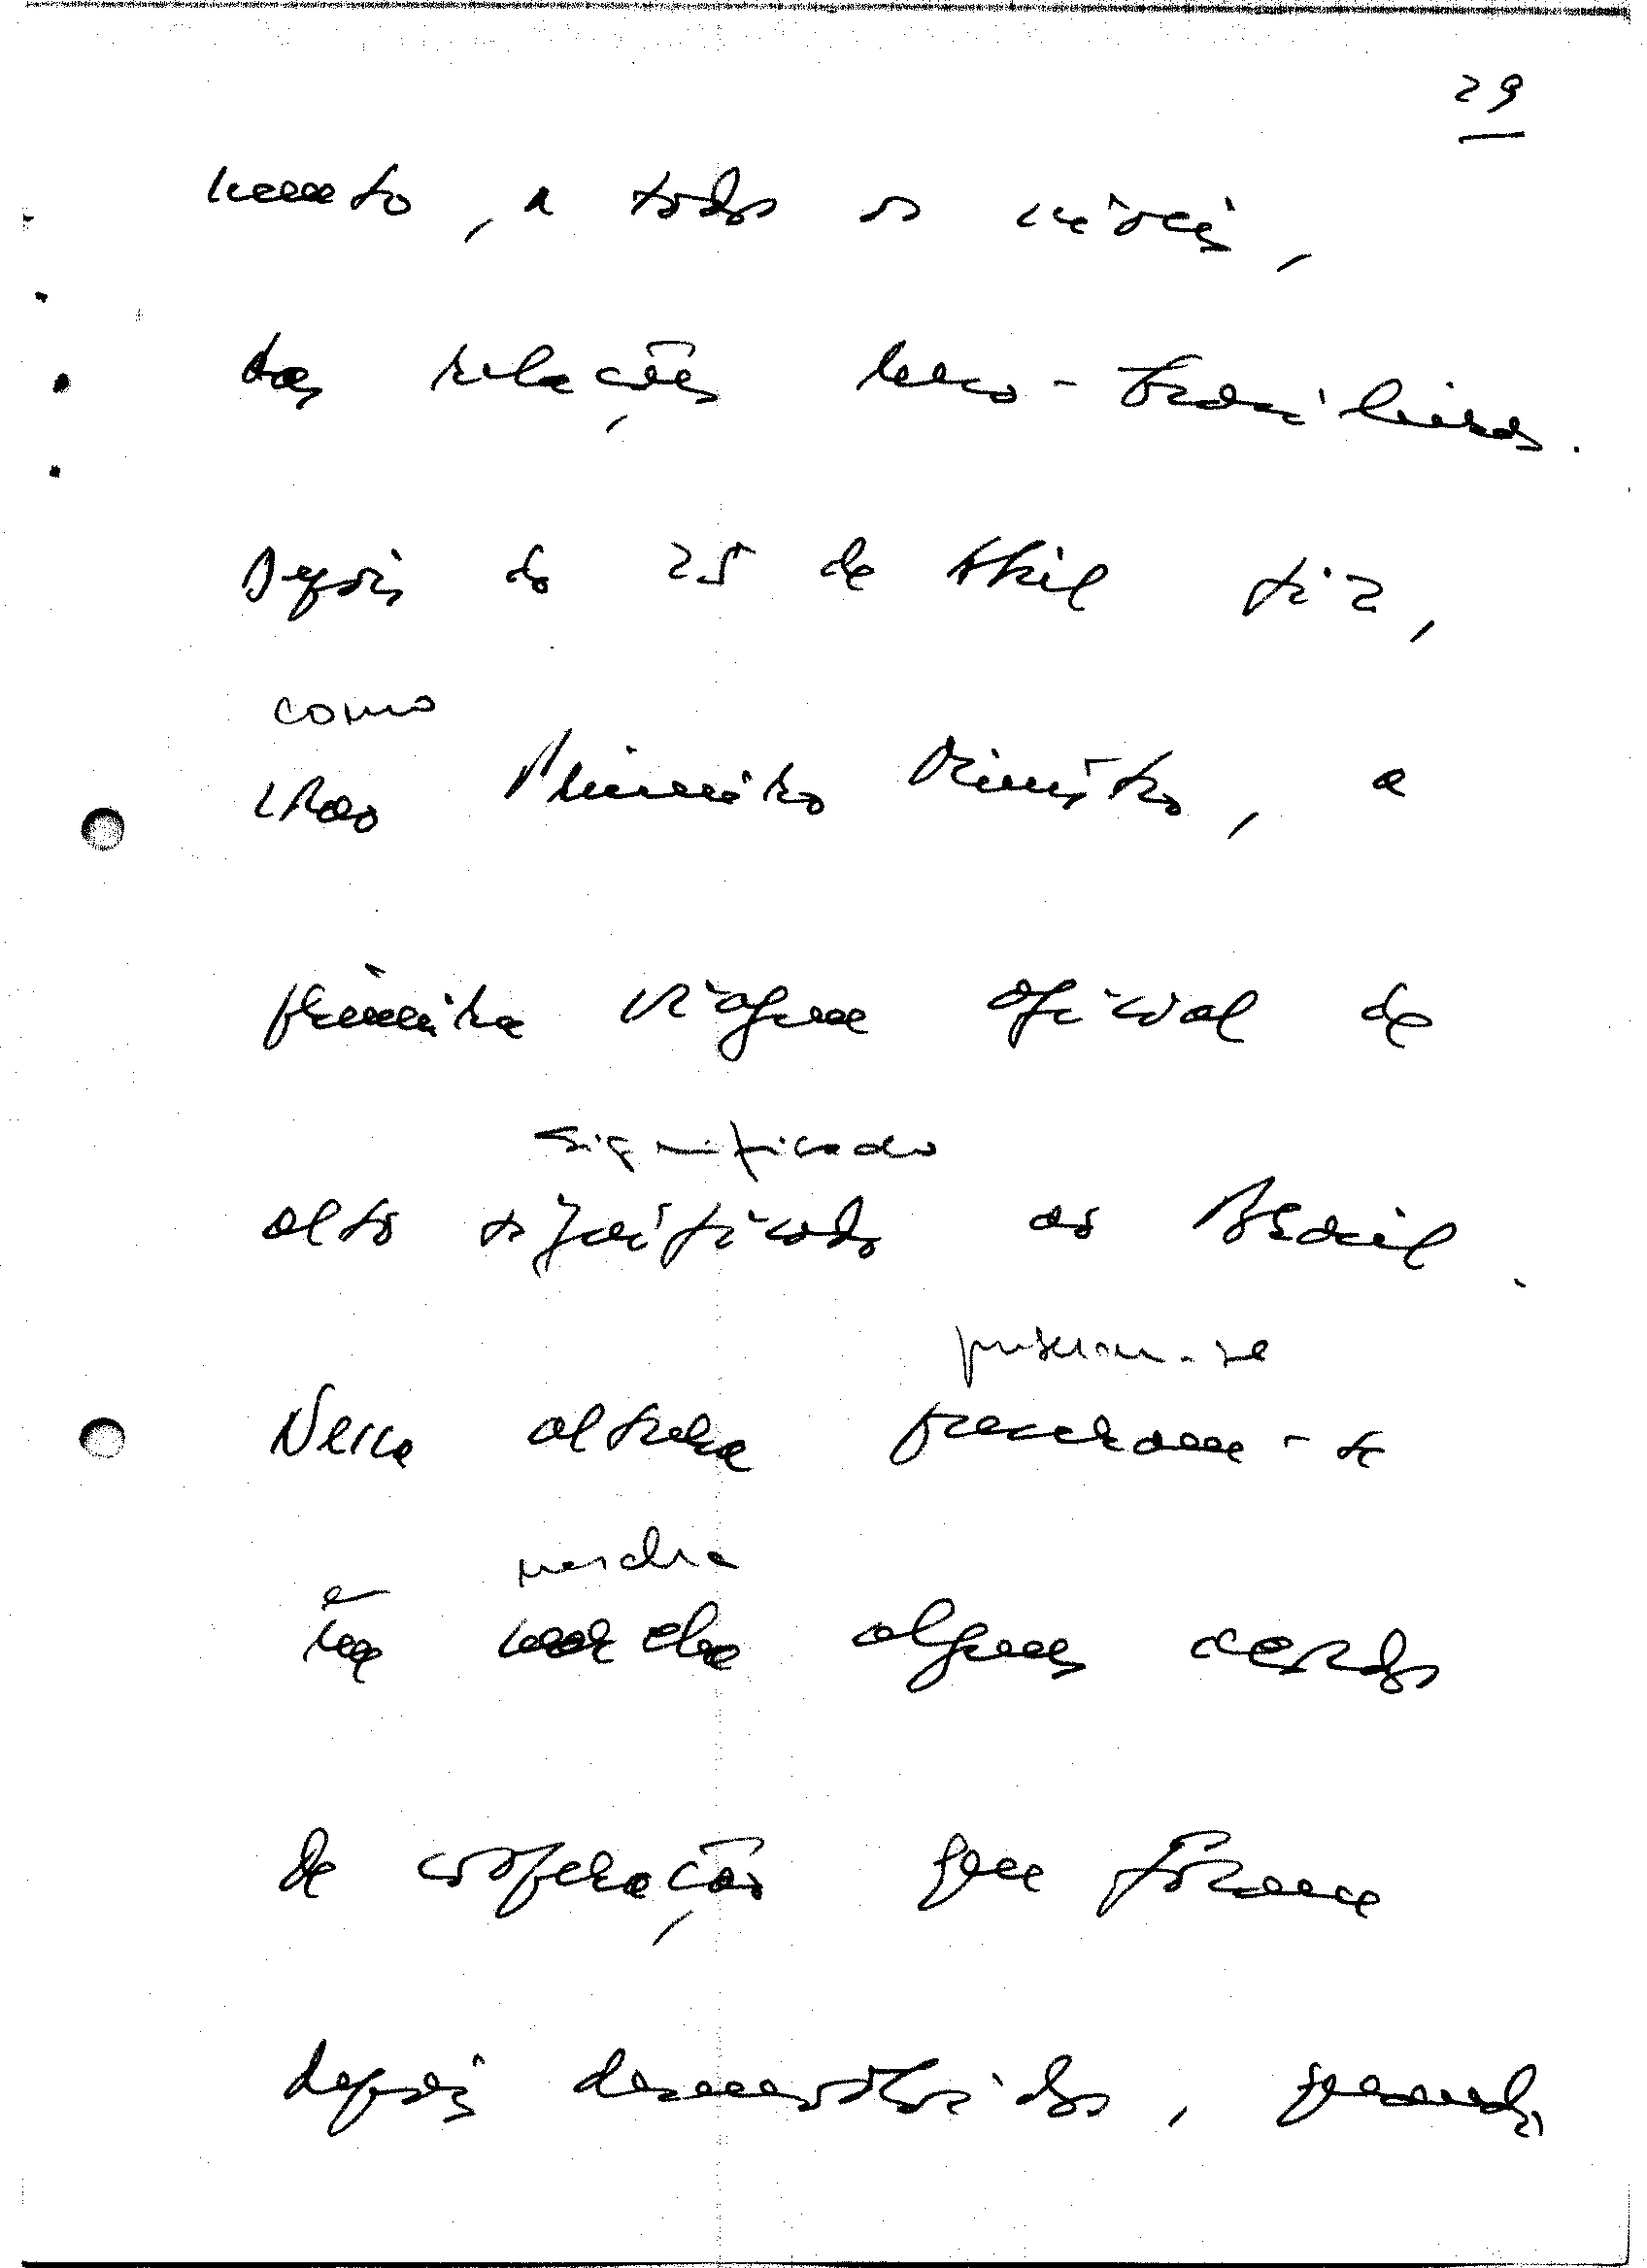 29
mento, a todos os níveis,
das relações luso-brasileiras.
Depois do 25 de Abril fiz,
como
como Primeiro Ministro, a
primeira viagem oficial de
significado
alto significado ao Brasil.
puseram-se
Nessa altura puseram-se
em marcha
em marcha alguns acordos
de cooperação que foram
depois desenvolvidos, quando,